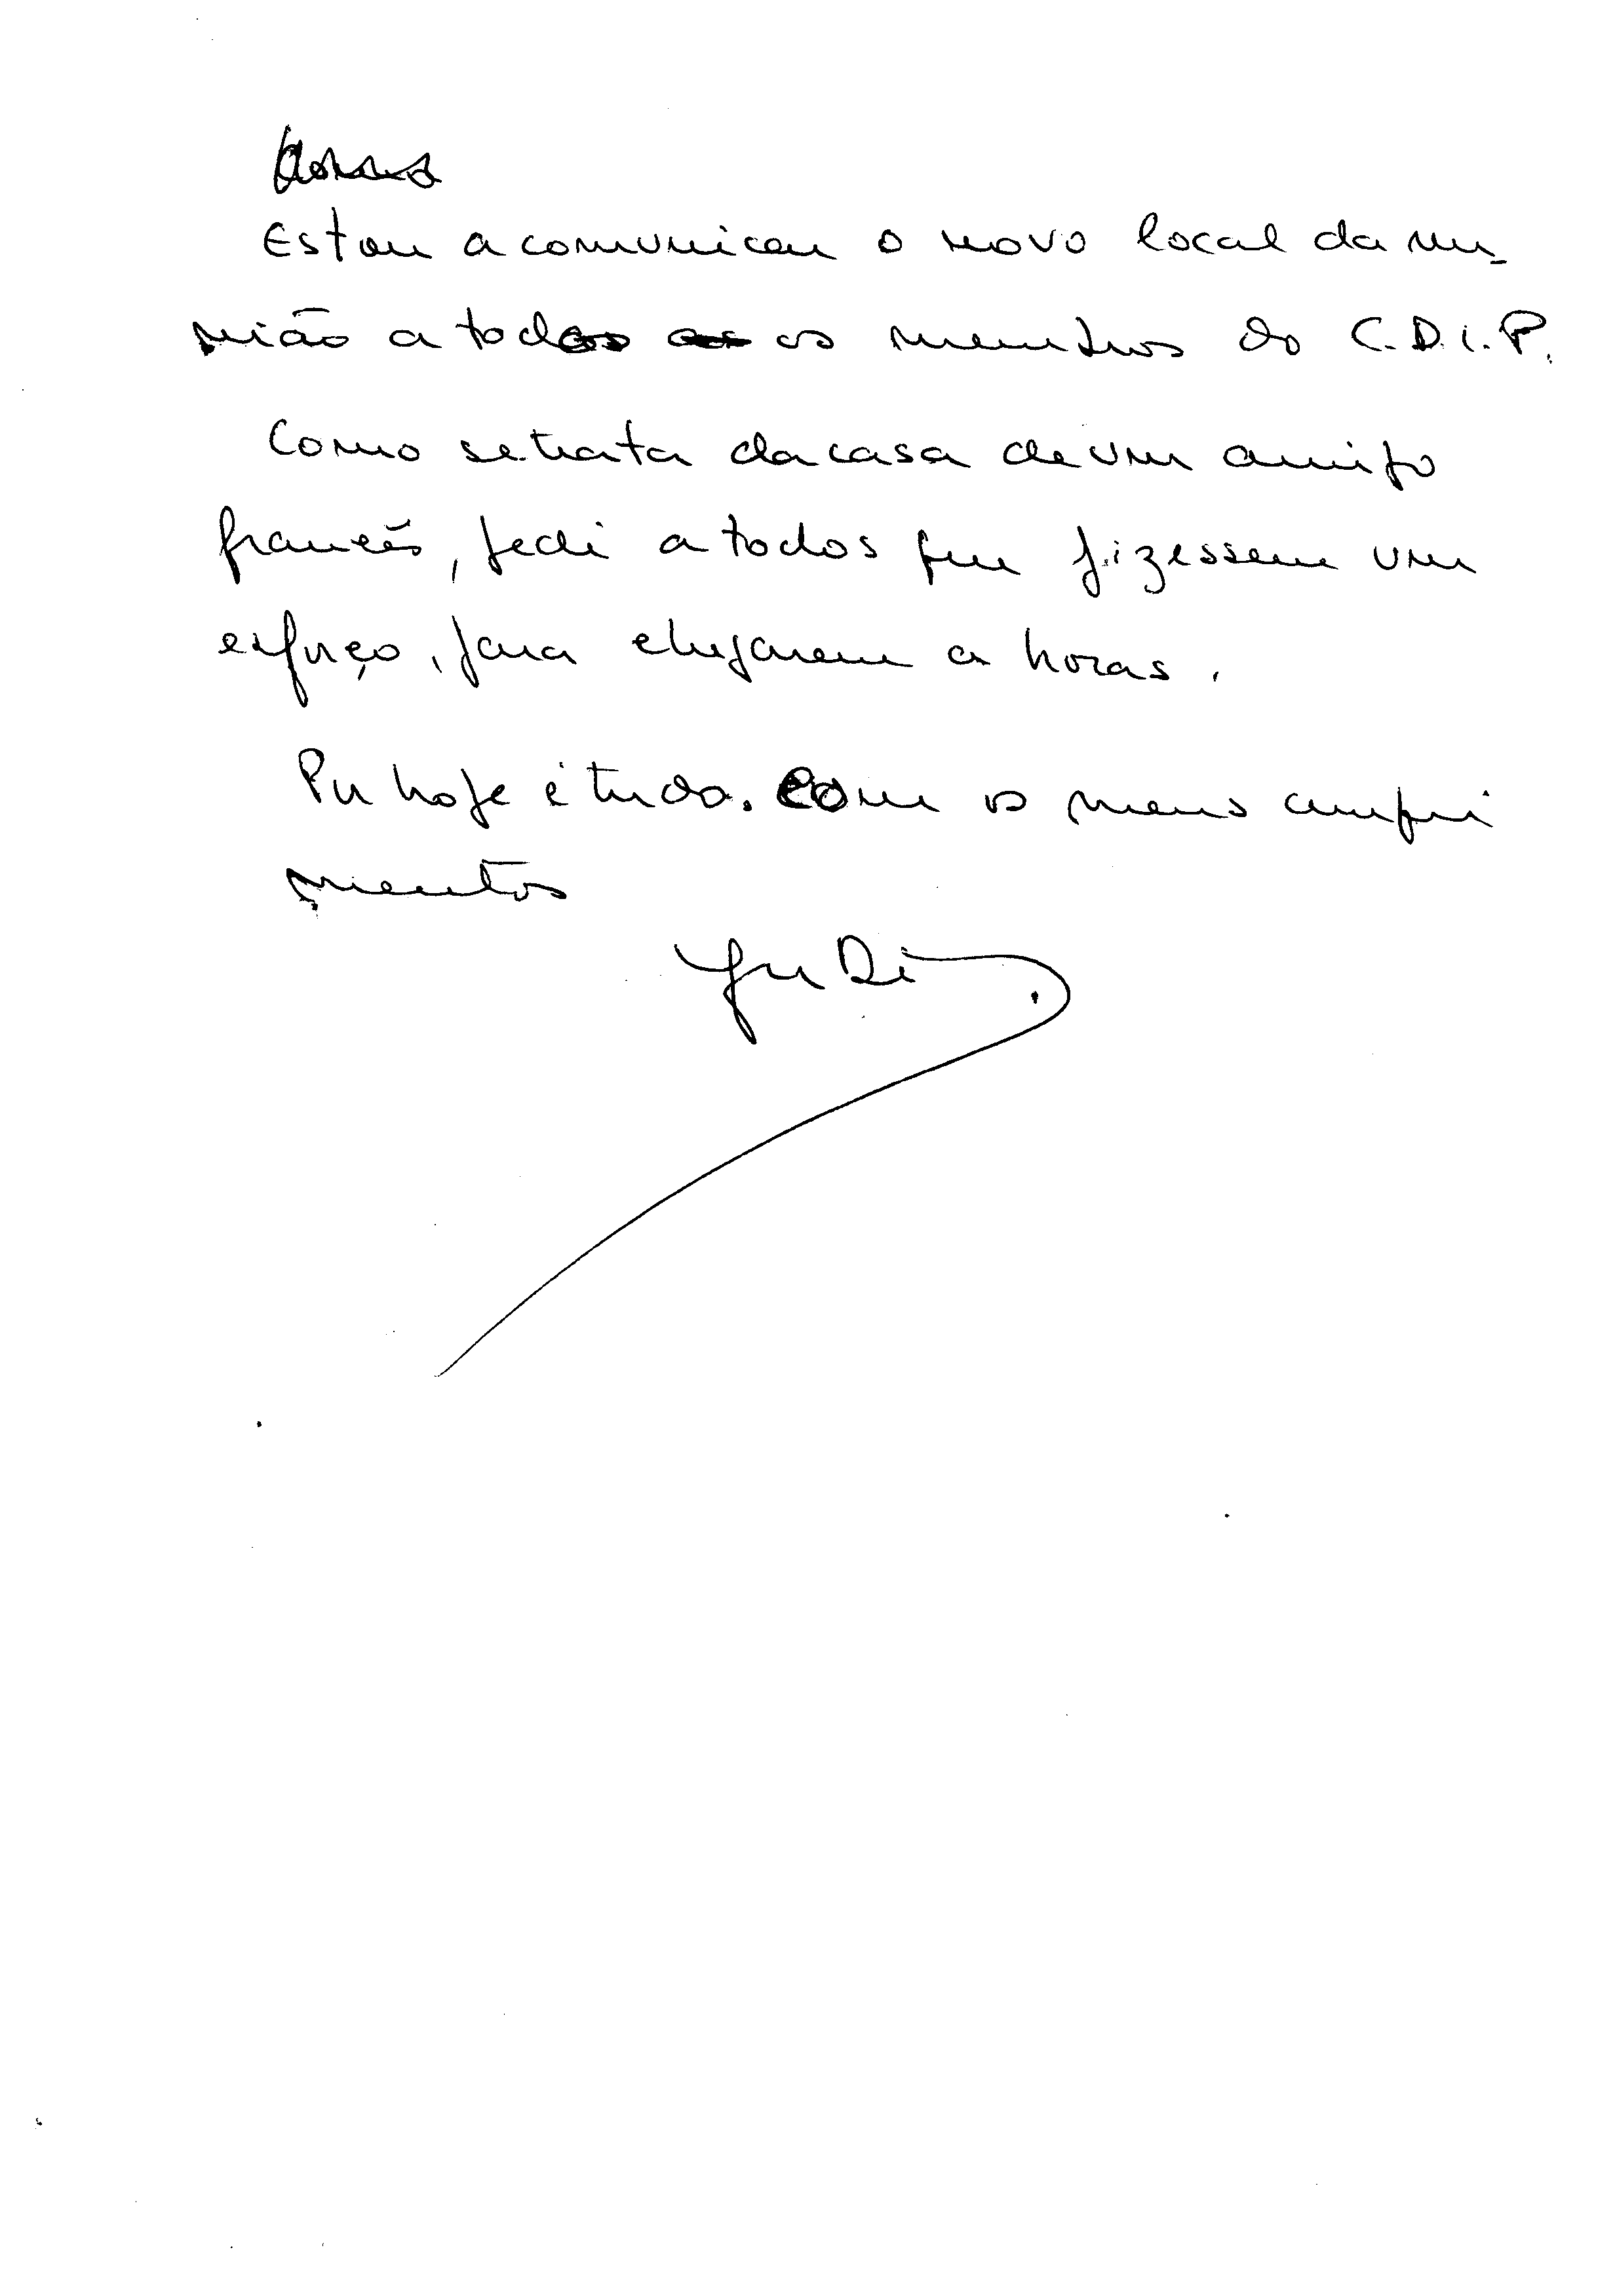 Estou a comunicar o novo local da reu-
nião a todos os membros do C.D.I.P.
Como se trata da casa de um amigo
francês, pedi a todos que fizessem um
esforço, para chegarem a horas.
Por hoje é tudo. Com os meus cumpri
mentos